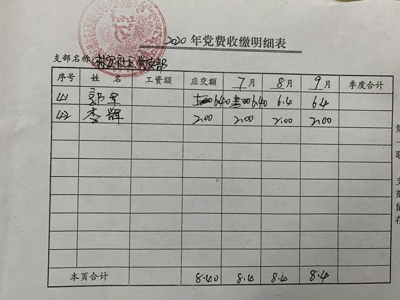 2020年党费收缴明细表
支部名称:
序号 姓名 工资额 应交额 7月 8月 9月 季度合计
41 郭军 6.40 6.40 6.4 6.4
42 李辉 2.00 2.00 2.00 2.00
本页合计 8.40 8.4 8.4 8.4
第
一
联
支
部
留
存